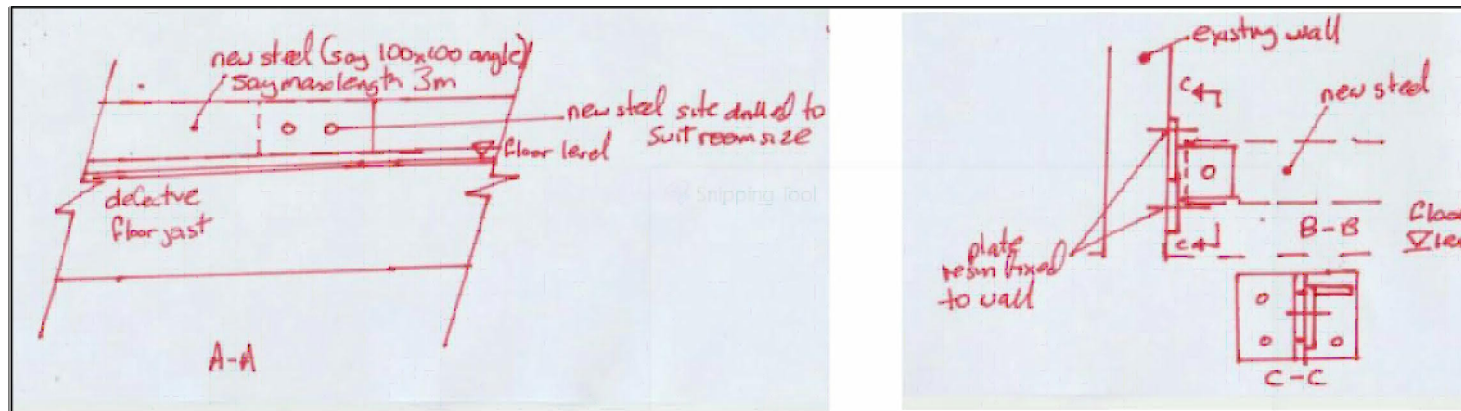 new steel (say 100x100 angle)
say max length 3m
new steel site drilled to
suit room size
floor level
defective
floor joist
A-A
Snipping Tool
existing wall
c
new steel
plate
resin fixed
to wall
c
B-B
floor
C-C